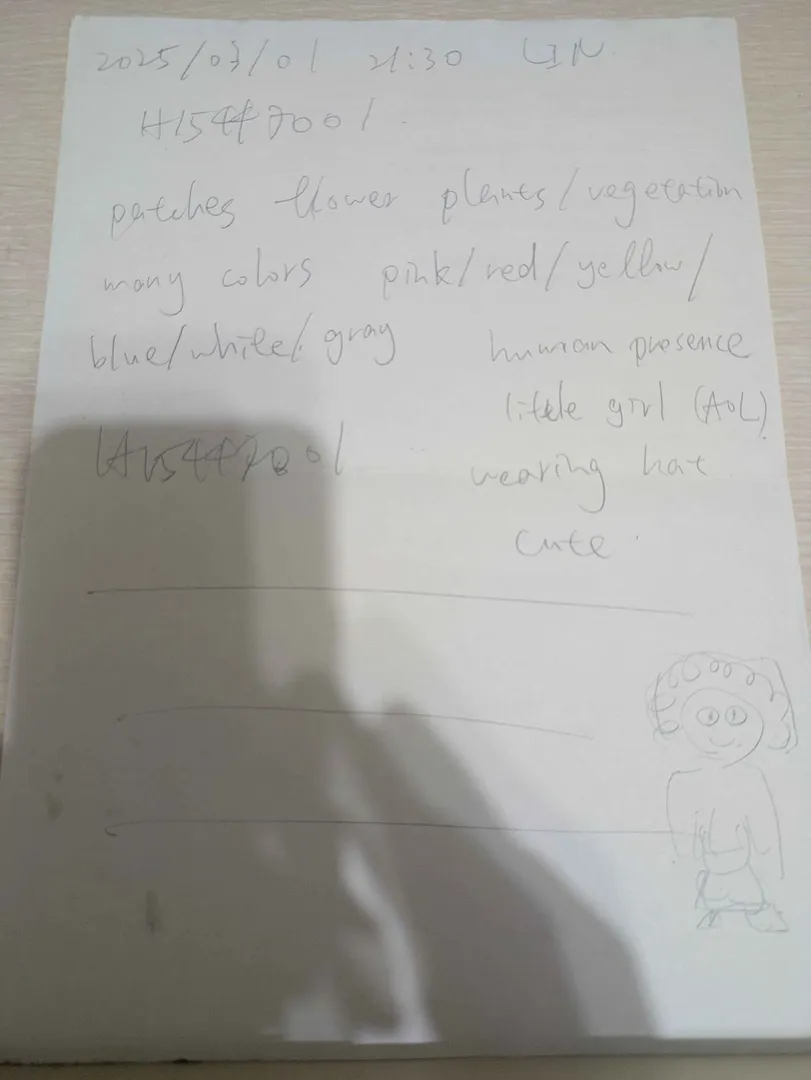 2025/03/01 21:30 LIN
H15447001
patches flower plants/vegetation
many colors pink/red/yellow/
blue/white/gray
human presence
little girl (AOL)
H15447001
wearing hat
cute